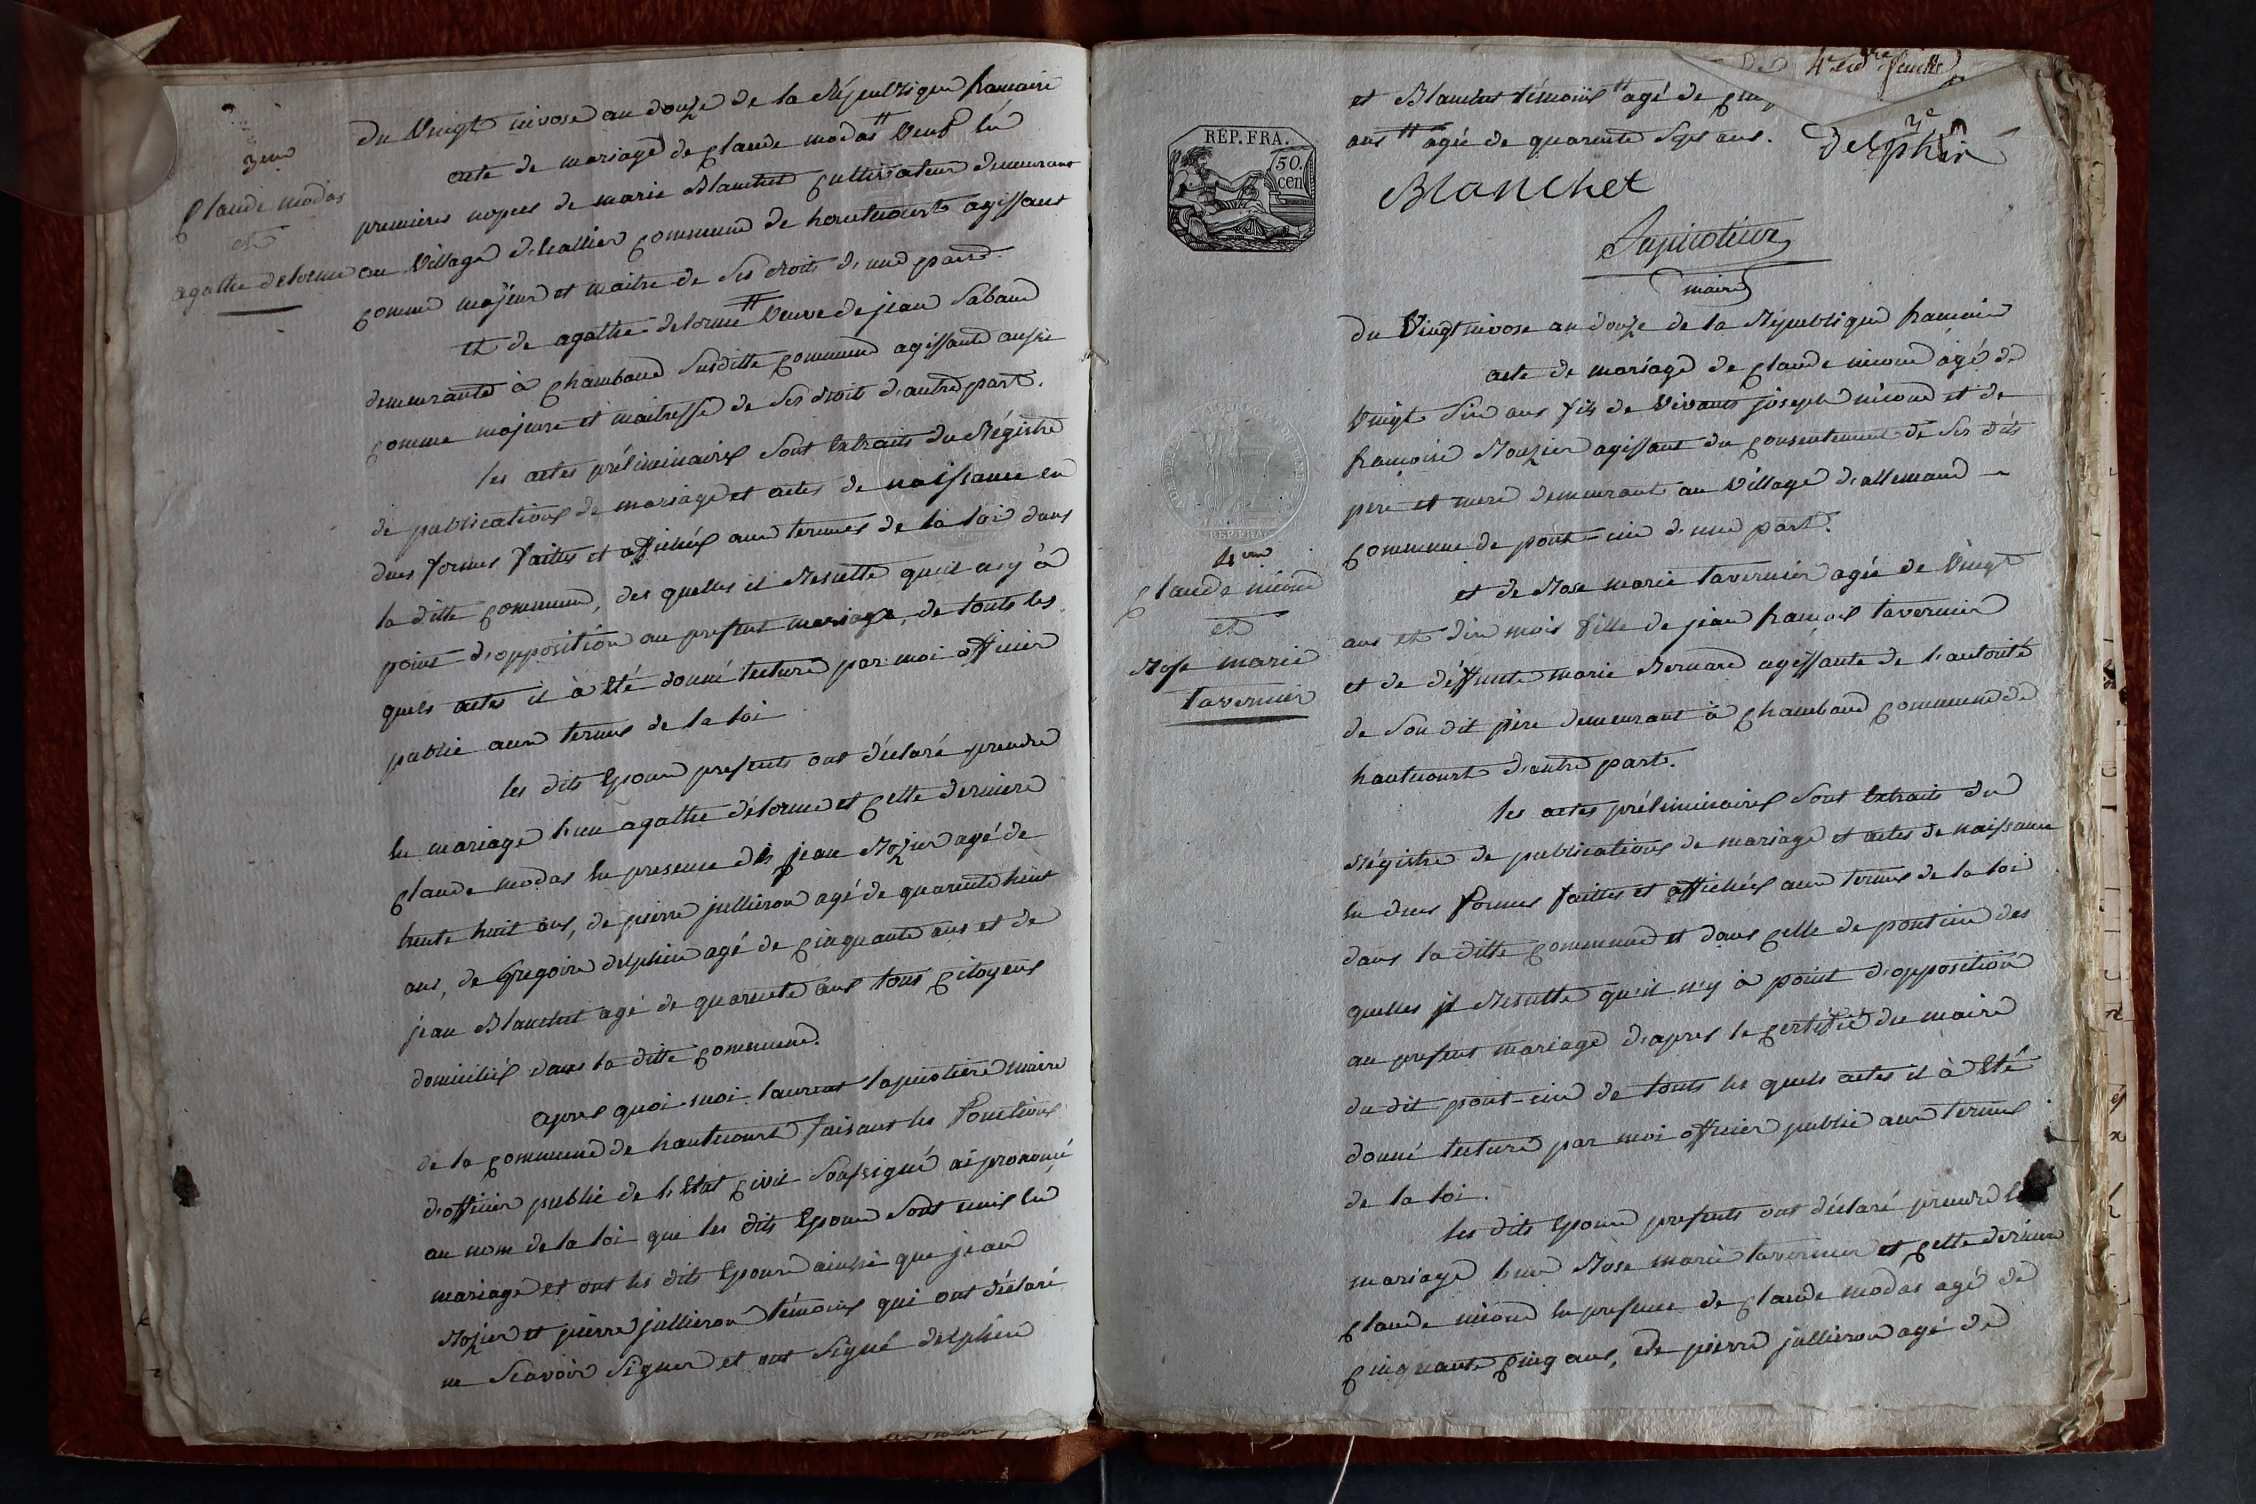 3eme
Claude modas
et
agathe delorme
du Vingt nivose an douze de la République francaise
acte de mariage de Claude modas # Veuf en
premieres nopces de marie Blanchet Cultivateur demeurant
au Village Commune de hautecourt agissant
comme majeur et maitre de ses droits d'une part.
et de agathe delorme # Veuve de jean Saband
demeurante à Chambaud susditte Commune agissante aussi
comme majeure et maitresse de ses droits d'autre part.
les actes préliminaires sont Extraits du Régistre
de publications de mariage et actes de naissance en
dues formes faittes et affichés aux termes de la loi dans
la ditte Commune, des quelles il Resulte qu'il n'y à
point d'opposition au present mariage, de touts les
quels actes il à Eté donné lecture par moi officier
public aux termes de la loi
les dits Epoux presents ont déclaré prendre
en mariage l'un agathe délorme et Cette derniere
Claude modas en presence de jean Rozier agé de
trente huit ans, de pierre jullieron agé de quarente huit
ans, de Gregoire delphin agé de Cinquante ans et de
jean Blanchet agé de quarente ans tous Citoyens
domiciliés dans la ditte Commune.
apres quoi moi laurent lapierotiere maire
de la Commune de hautecourt faisant les fonctions
d'officier public de l'Etat Civil soussigné ai prononcé
au nom de la loi que les dits Epoux sont unis en
mariage et ont les dits Epoux ainsi que jean
Rozier et pierre jullieron témoins qui ont déclaré
ne Scavoir Signer et ont signé delphin
4e feuille
et Blanchet témoins # agé de
ans # agée de quarente Sept ans.
delphin
REP. FRA.
50.
cen
Blanchet
maire
du Vingt nivose an douze de la République francaise
acte de mariage de Claude nicoud agé de
Vingt Six ans fils de Vivants joseph nicoud et de
françoise Rouzier agissant du Consentement de ses dits
pere et mere demeurant au Village d'allemand
Commune de pont-ain d'une part.
REP. FRA.
4eme
Claude nicoud
et
Rose marie
tavernier
et de Rose marie tavernier agée de Vingt
ans et dix mois fille de jean françois tavernier
et de déffunte marie Bernard agissante de l'autorité
de son dit père demeurant à Chambaud Commune de
hautecourt d'autre part.
les actes préliminaires sont Extraits du
Régistre de publications de mariage et actes de naissance
en dues formes faittes et affichés aux termes de la loi
dans la ditte Commune et dans Celle de pont ain des
quelles il Resulte qu'il n'y à point d'opposition
au present mariage d'apres le Certifié du maire
du dit pont-ain de touts les quels actes il à Eté
donné lecture par moi officier public aux termes
de la loi.
les dits Epoux presents ont déclaré prendre
mariage l'un Rose marie tavernier et Cette derniere
Claude nicoud en presence de Claude modas agé de
Cinquante Cinq ans, de pierre jullieron agé de